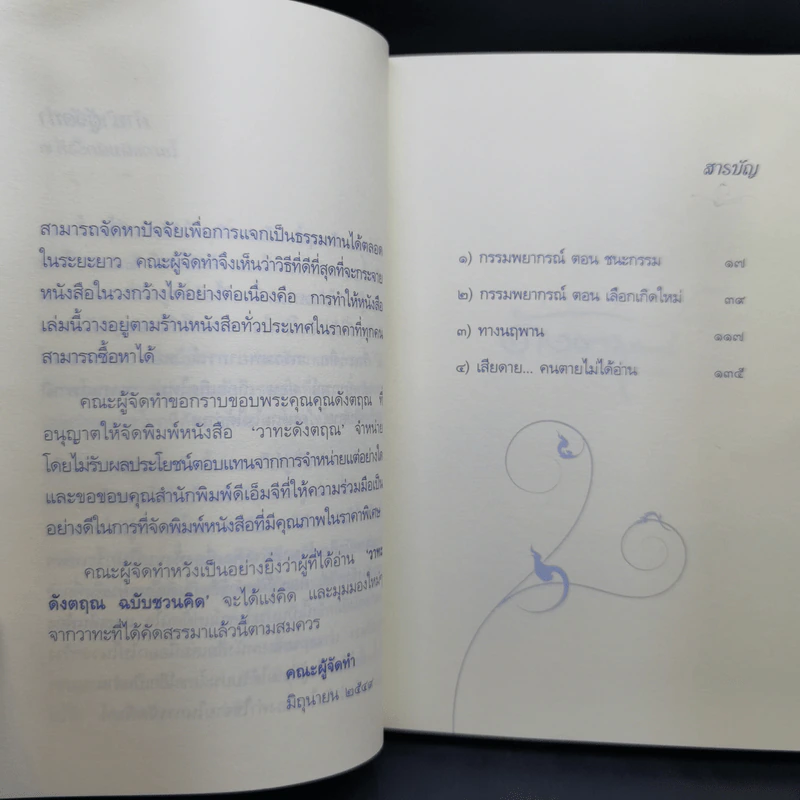 สามารถจัดหาปัจจัยเพื่อการแจกเป็นธรรมทานได้ตลอด
ในระยะยาว คณะผู้จัดทำจึงเห็นว่าวิธีที่ดีที่สุดที่จะกระจาย
หนังสือในวงกว้างได้อย่างต่อเนื่องคือ การทำให้หนังสือ
เล่มนี้วางอยู่ตามร้านหนังสือทั่วประเทศในราคาที่ทุกคน
สามารถซื้อหาได้
คณะผู้จัดทำขอกราบขอบพระคุณคุณดังตฤณ ที่
อนุญาตให้จัดพิมพ์หนังสือ ‘วาทะดังตฤณ’ จำหน่าย
โดยไม่รับผลประโยชน์ตอบแทนจากการจำหน่ายแต่อย่างใด
และขอขอบคุณสำนักพิมพ์ดีเอ็มจีที่ให้ความร่วมมือเป็น
อย่างดีในการที่จัดพิมพ์หนังสือที่มีคุณภาพในราคาพิเศษ
คณะผู้จัดทำหวังเป็นอย่างยิ่งว่าผู้ที่ได้อ่าน ‘วาทะ
ดังตฤณ ฉบับชวนคิด’ จะได้แง่คิด และมุมมองใหม่ๆ
จากวาทะที่ได้คัดสรรมาแล้วนี้ตามสมควร
คณะผู้จัดทำ
มิถุนายน ๒๕๔๙
สารบัญ
๑) กรรมพยากรณ์ ตอน ชนะกรรม ๑๗
๒) กรรมพยากรณ์ ตอน เลือกเกิดใหม่ ๓๙
๓) ทางนฤพาน ๑๑๗
๔) เสียดาย... คนตายไม่ได้อ่าน ๑๓๕